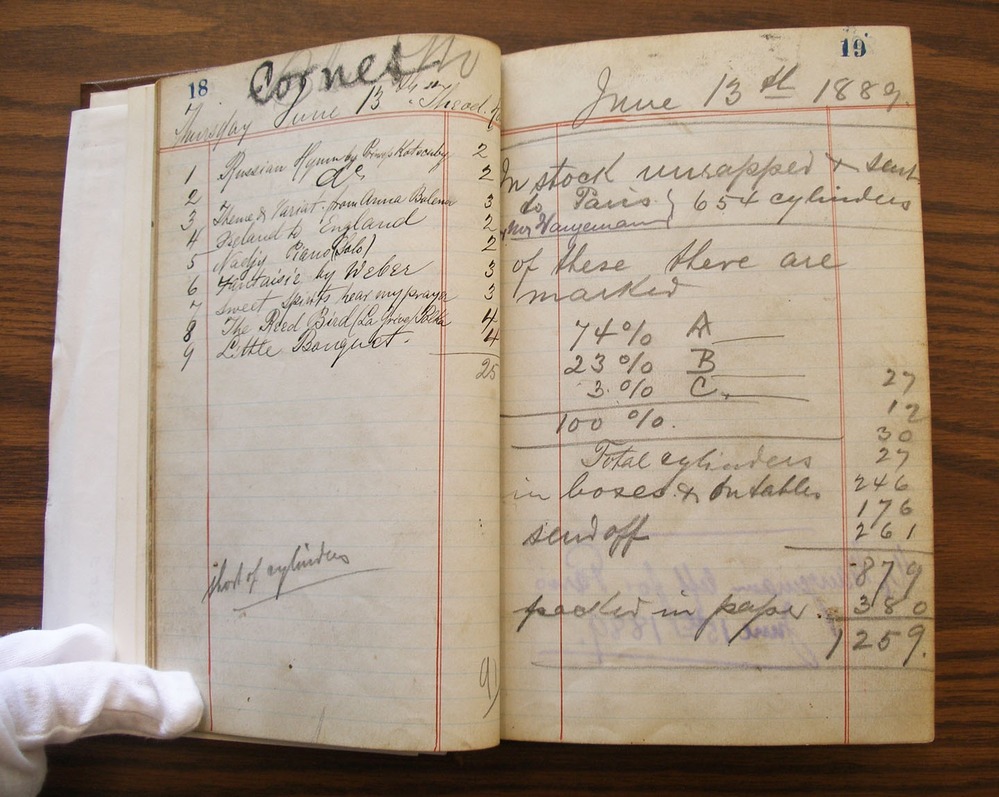 18
Cornet
Thursday June 13th
1 Russian Hymn by 2
2 do 2
3 Theme & Variat. from Anna Bolena 3
4 Ireland to England 2
5 Nadjy Piano (Solo) 2
6 Fantaisie by Weber 3
7 Sweet Spirits hear my prayer 3
8 The Reed Bird Polka 4
9 Little Banquet. 4
25
short of cylinders
9)
19
June 13th 1889.
In stock unwrapped & sent
to Paris } 654 cylinders
Mr Wangemann
of these there are
marked
74 % A
23 % B
3 % C.
100 %.
27
12
30
Total cylinders 27
in boxes & on tables 246
176
send off 261
879
packed in paper 380
1259.
left for Paris
June 15th 1889.